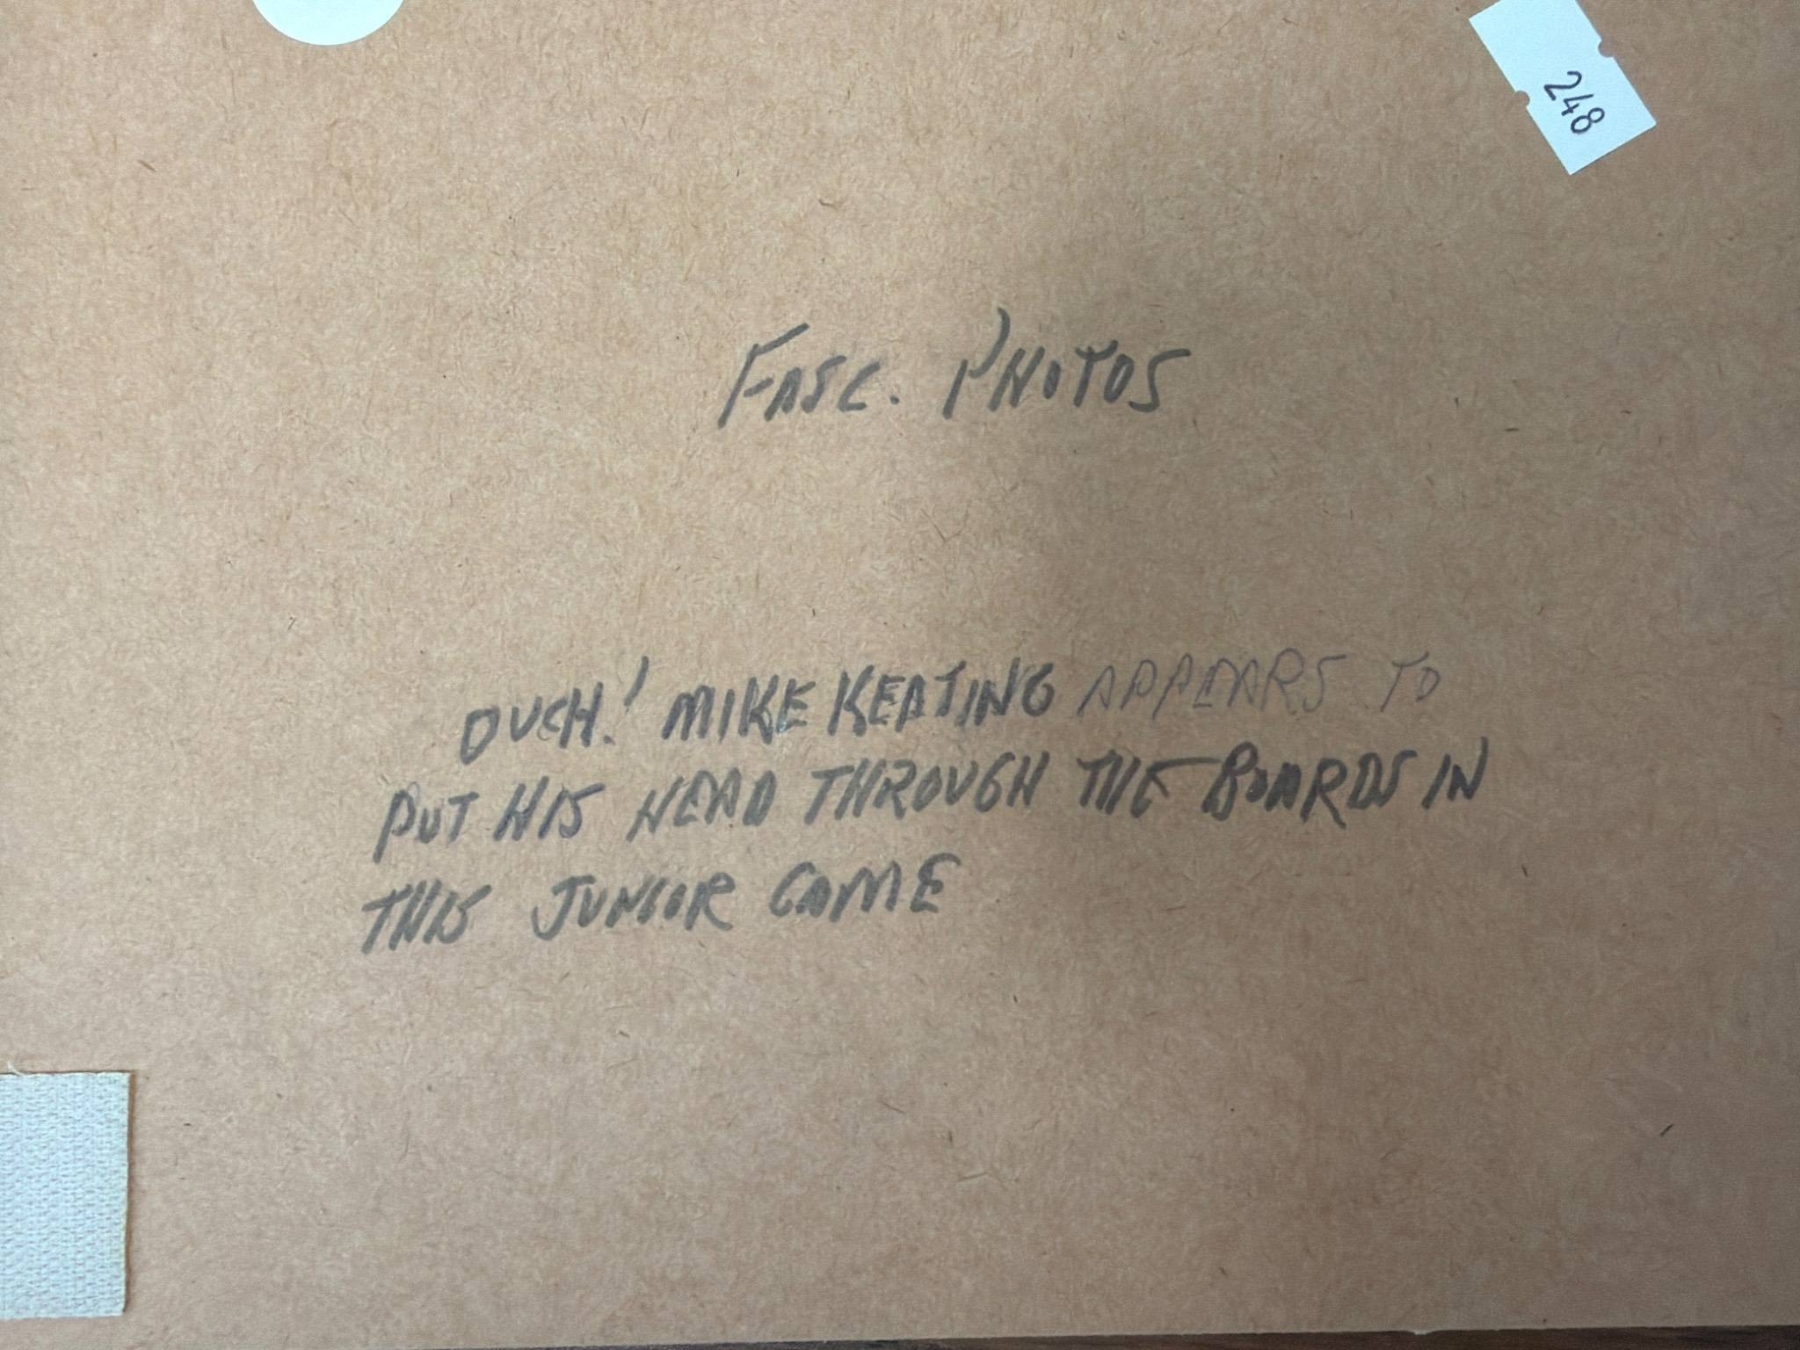 248
FASC. PHOTOS
OUCH! MIKE KEATING APPEARS TO
PUT HIS HEAD THROUGH THE BOARDS IN
THIS JUNIOR GAME